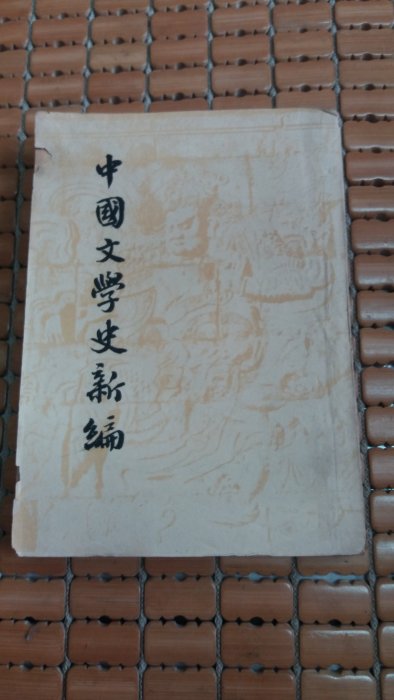 中國文學史新編